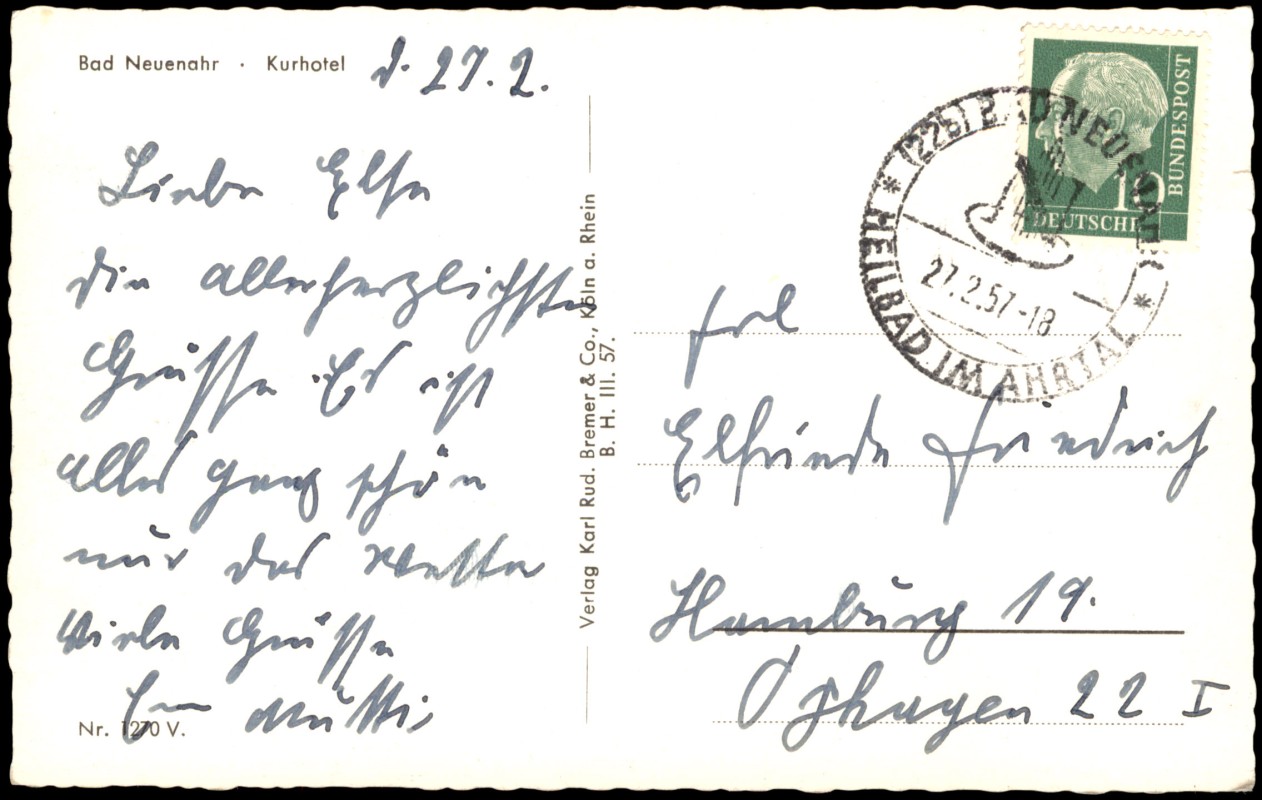 Bad Neuenahr · Kurhotel
d. 27. 2.
Liebe Else
die allerherzlichsten
Grüsse. Es ist
alles ganz schön
nur das Wetter
Viele Grüsse
Mutti
Nr. 1270 V.
Verlag Karl Rud. Bremer & Co., Köln a. Rhein
B. H. III. 57.
DEUTSCHE
BUNDESPOST
10
(22b) BAD NEUENAHR
27.2.57-18
* HEILBAD IM AHRTAL *
Frl
Elfriede Friedrich
Hamburg 19.
22 I